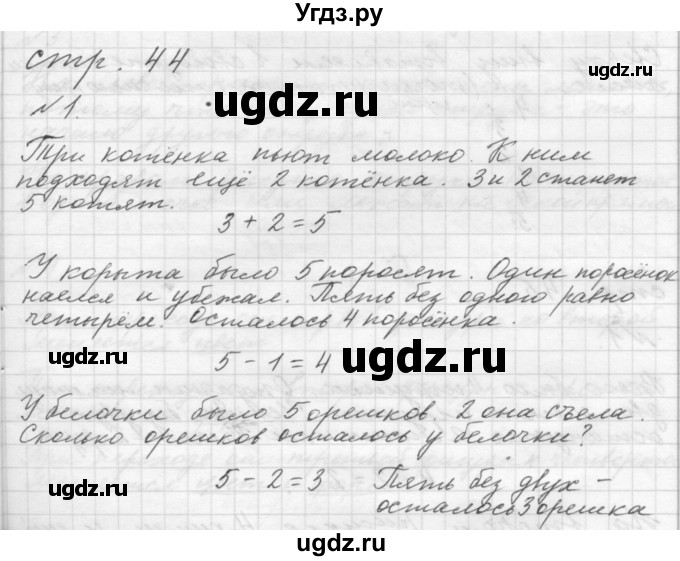 Угдз.ру
стр. 44
ugdz.ru
ugdz.ru
№1.
Три котёнка пьют молоко. К ним
подходят ещё 2 котёнка. 3 и 2 станет
5 котят.
3 + 2 = 5
У корыта было 5 поросят. Один поросёнок
наелся и убежал. Пять без одного равно
четырём. Осталось 4 поросёнка.
ugdz.ru
5 - 1 = 4
ugdz.ru
У белочки было 5 орешков. 2 она съела.
Сколько орешков осталось у белочки?
ugdz.ru
5 - 2 = 3 Пять без двух -
осталось 3 орешка
ugdz.ru